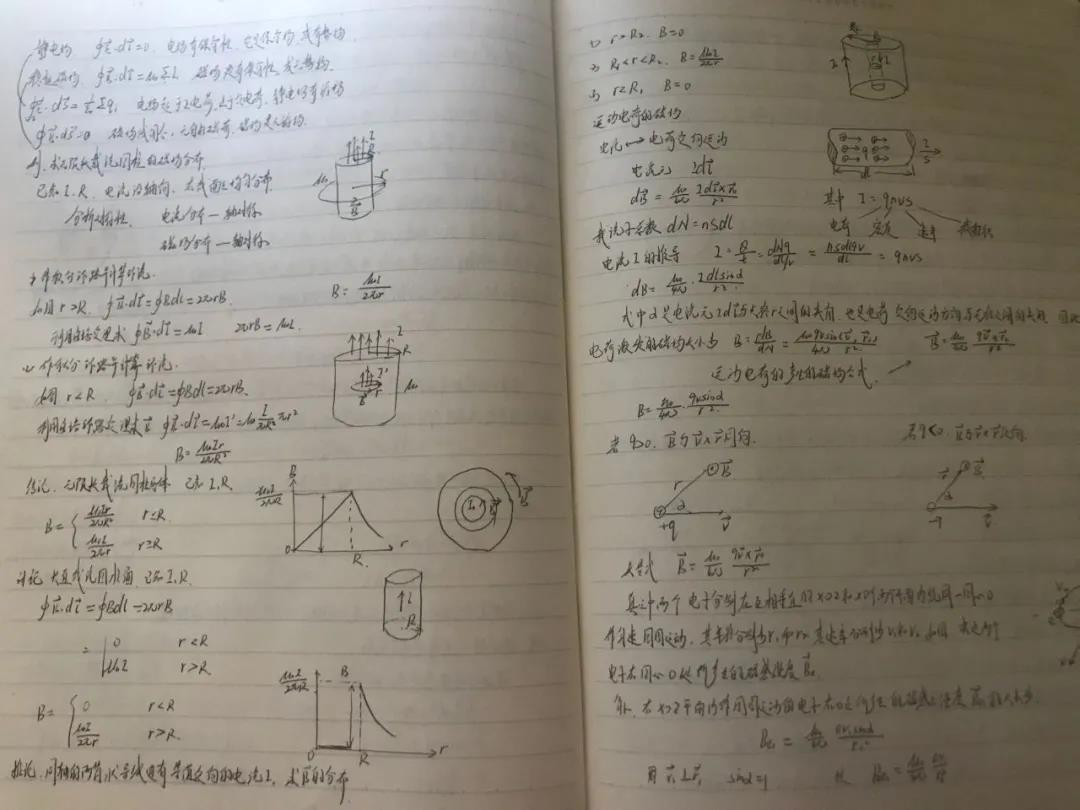 静电场 ∮E·dl=0, 电场有保守性, 它是保守场, 或有势场
稳恒磁场 ∮B·dl=μ₀ΣI 磁场没有保守性,
∮E·dS=1/ε₀ Σqᵢ 静电场有源场
∮B·dS=0 磁场线闭合, 无自由磁荷, 磁场是无源场
例. 求无限长载流圆柱的磁场分布
已知 I, R, 电流沿轴向, 在截面上均匀分布
分析对称性. 电流分布—轴对称
磁场分布—轴对称
μ₀ I R B
作积分环路并计算环流
如图 r>R, ∮B·dl=∮Bdl=2πrB
利用安培环路定理求 ∮B·dl=μ₀I 2πrB=μ₀I
B=μ₀I/2πr
(2) 作积分环路并计算环流
如图 r<R, ∮B·dl=∮Bdl=2πrB
利用安培环路定理求B ∮B·dl=μ₀I'=μ₀ I/πR² πr²
B=μ₀Ir/2πR²
I R μ₀ I' B
结论. 无限长载流圆柱导体 已知 I,R
B={ μ₀Ir/2πR² r≤R
μ₀I/2πr r≥R
B μ₀I/2πR 0 R r
讨论. 长直载流圆柱面, 已知 I,R
∮B·dl=∮Bdl=2πrB
= 0 r<R
μ₀I r>R
I R
B={ 0 r<R
μ₀I/2πr r>R
B μ₀I/2πR 0 R r
推论. 同轴的两筒状导线通有等值反向的电流I, 求B的分布
(1) r>R₂, B=0
(2) R₁<r<R₂, B=μ₀I/2πr
(3) r<R₁, B=0
运动电荷的磁场
电流↔电荷定向运动
电流元 Idl
dB=μ₀/4π Idl×r₀/r²
其中 I=qnvs
电荷 密度 速率 截面积
载流子总数 dN=nSdl
电流I的推导 I=Q/t=dNq/dl/v=nsdlqv/dl=qnvs
dB=μ₀/4π Idlsinα/r²
式中α是电流元Idl与矢径r之间的夹角, 也是电荷定向运动方向与矢径之间的夹角, 因此
电荷激发的磁场大小为 B=dB/dN=μ₀qvsin(v,r₀)/4π r² B=μ₀/4π qv×r₀/r²
运动电荷的产生的磁场公式
B=μ₀/4π qvsinα/r²
若 q>0, B与v×r同向. 若 q<0, B与v×r反向
r B α +q v
r B α -q v
矢量式 B=μ₀/4π qv×r₀/r²
真空中两个电子分别在互相垂直的xoz和xoy两平面内绕同一圆心O
作匀速圆周运动, 其半径分别为r₁和r₂ 其速率分别为v₁和v₂
电子在圆心O处所产生的磁感强度B.
解. 在xoz平面内作圆周运动的电子在O点所产生的磁感强度
用 v⊥r, sinα=1